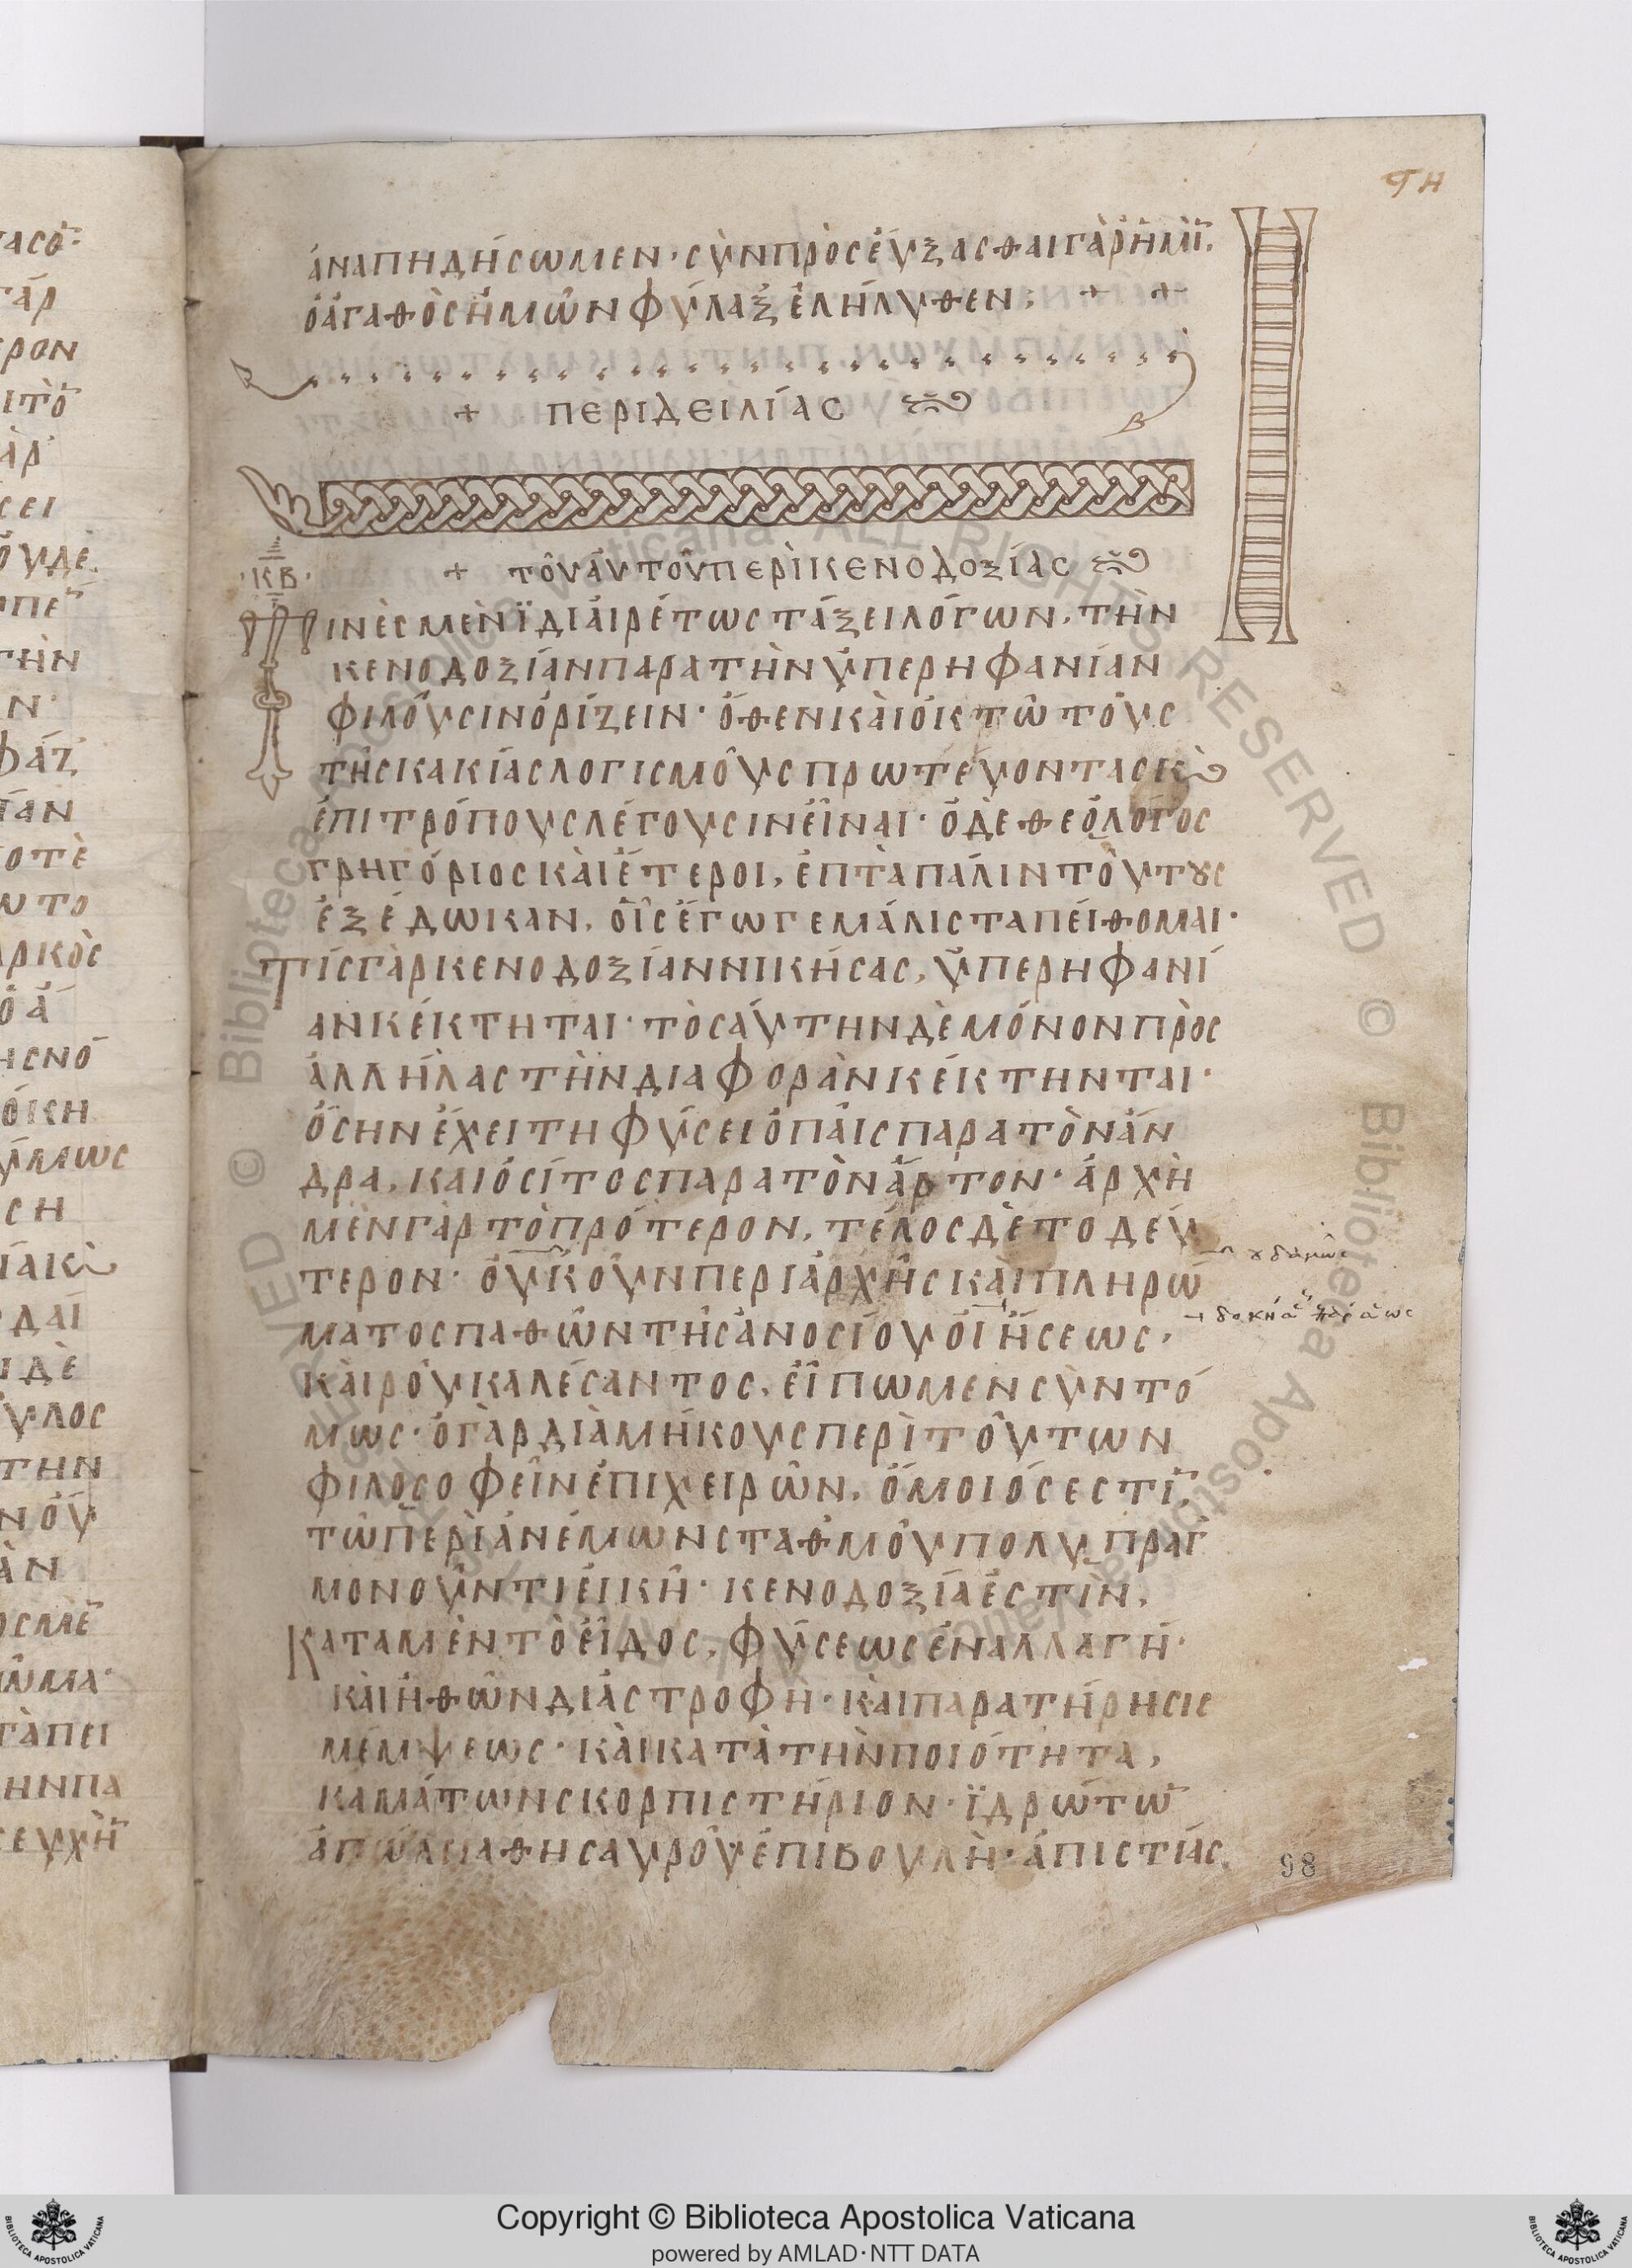 ϟη
ἀναπηδήσωμεν· σὺν προσεύξασθαι γὰρ ἡμῖ̅,
ὁ ἀγαθὸς ἡμῶν φύλαξ ἐλήλυθεν; + +
+ περὶ δειλίας
·κβ·
+ τοῦ αὐτοῦ περὶ κενοδοξίας
Τινὲς μὲν ϊδιαιρέτως τάξει λόγων, τὴν
κενοδοξίαν παρα τὴν ὑπερηφανίαν
φιλοῦσιν ὁρίζειν· ὅθεν καὶ ὀκτὼ τοὺς
τῆς κακίας λογισμοὺς πρωτεύοντας κ(αὶ)
ἐπιτρόπους λέγουσιν εἶναι· ὁ δὲ θεολόγος
γρηγόριος καὶ ἕτεροι, ἑπτὰ πάλιν τούτους
ἐξέδωκαν, οἷς ἔγωγε μάλιστα πείθομαι·
Τίς γὰρ κενοδοξίαν νικήσας, ὑπερηφανί
αν κέκτηται· τοσαύτην δὲ μόνον πρὸς
ἀλλήλας τὴν διαφορὰν κέκτηνται·
ὅσην ἔχει τη φύσει ὁ παῖς παρα τὸν ἄν
δρα, και ὁ σίτος παρα τὸν ἄρτον· ἀρχὴ
μὲν γὰρ τὸ πρότερον, τέλος δὲ το δεύ
τερον· οὐκοῦν περι ἀρχῆς καὶ πληρώ
ματος παθῶν τῆς ἀνοσίου οἰήσεως,
καιροῦ καλέσαντος, εἴπωμεν συντό
μως· ὁ γὰρ διὰ μήκους περὶ τούτων
φιλοσοφεῖν ἐπιχειρῶν, ὅμοιός εστι̅,
τῶ περὶ ἀνέμων σταθμοῦ πολυπραγ
μονοῦντι εἰκῆ· κενοδοξία ἐστὶν,
Κατα μὲν τὸ εἶδος, φύσεως ἐναλλαγή·
καὶ ἠθῶν διάστροφὴ· καὶ παρατήρησις
μέμψεως· καὶ κατὰ τὴν ποιότητα,
καμάτων σκορπιστήριον· ϊδρώτω̅
ἀπώλεια θησαυροῦ ἐπιβουλὴ· ἀπιστίας
98
Copyright © Biblioteca Apostolica Vaticana
powered by AMLAD·NTT DATA